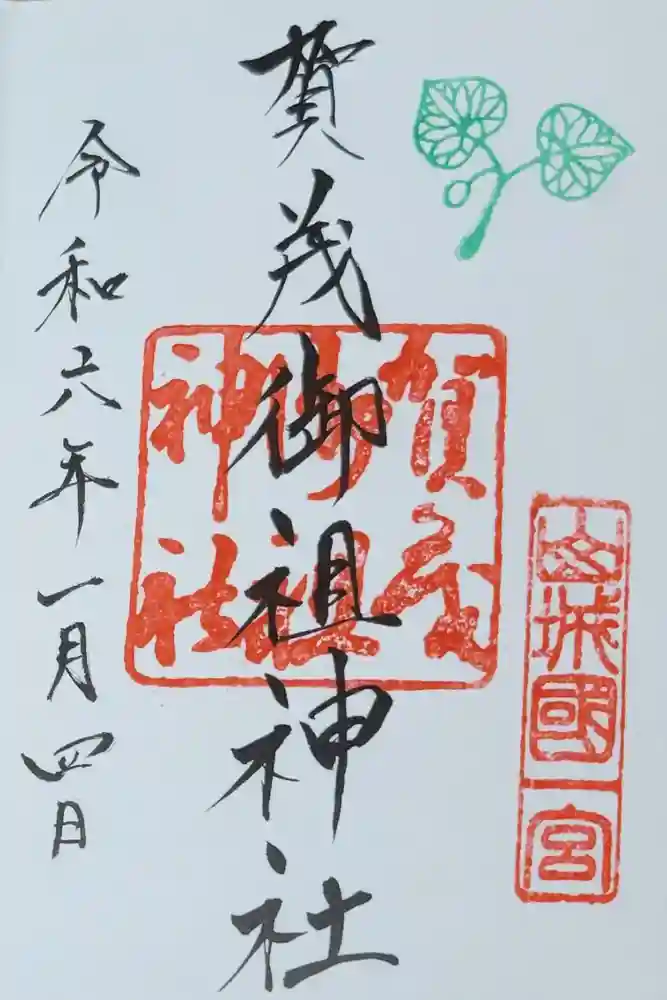 山城國一宮
賀茂御祖神社
賀茂御祖神社
令和六年一月四日